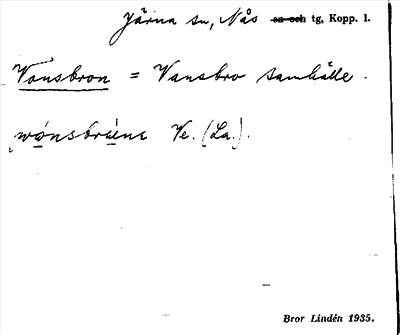 Järna sn, Nås sn och tg, Kopp. l.
Vansbron = Vansbro samhälle.
wånsbruene Ve. (La.).
Bror Lindén 1935.